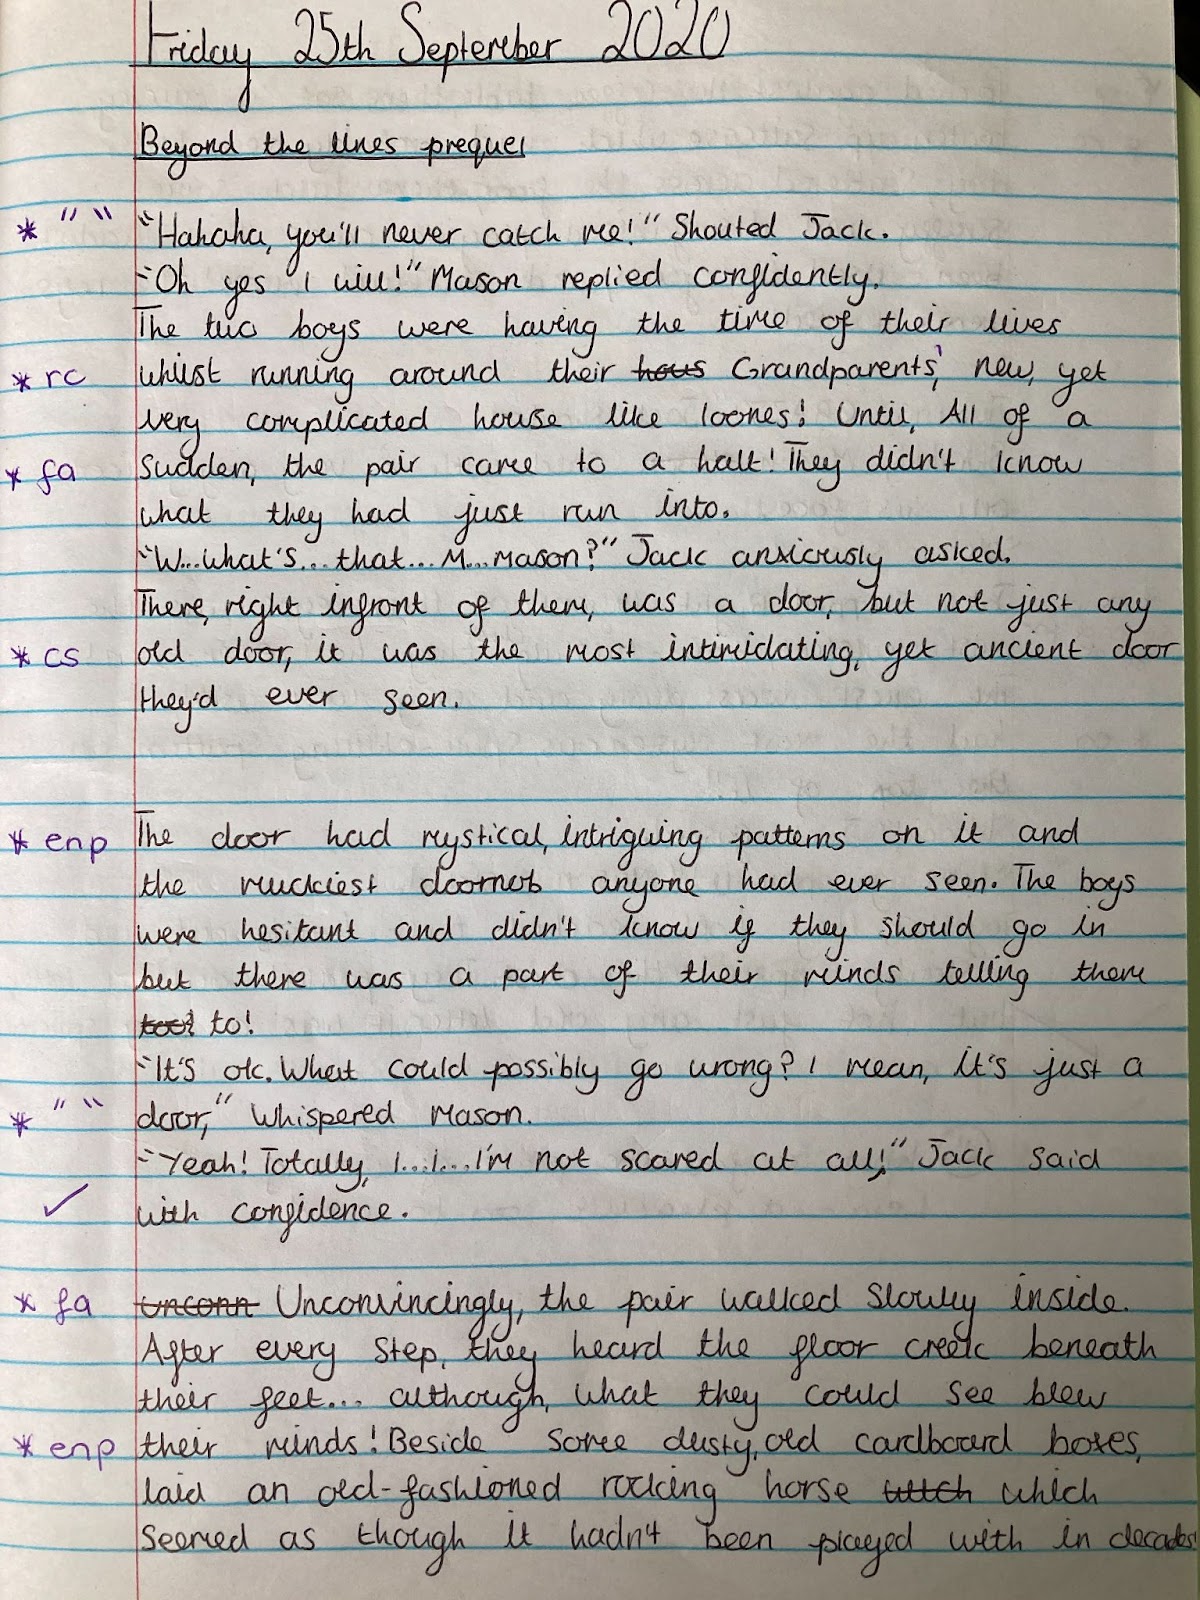 Friday 25th September 2020
Beyond the lines prequel
* " " "Hahaha, you'll never catch me!" Shouted Jack.
"Oh yes I will!" Mason replied confidently.
The two boys were having the time of their lives
* rc whilst running around their hous Grandparents', new, yet
very complicated house like loones! Until, All of a
* fa sudden, the pair came to a halt! They didn't know
what they had just run into.
"W...what's...that...M...Mason?" Jack anxiously asked.
There, right infront of them, was a door, but not just any
* cs old door, it was the most intimidating, yet ancient door
they'd ever seen.
* enp The door had mystical, intriguing patterns on it and
the muckiest doornob anyone had ever seen. The boys
were hesitant and didn't know if they should go in
but there was a part of their minds telling them
to!
"It's ok. What could possibly go wrong? I mean, it's just a
* " " door," Whispered Mason.
"Yeah! Totally, I...I...I'm not scared at all!" Jack said
✓ with confidence.
* fa Unconn Unconvincingly, the pair walked slowly inside.
After every step, they heard the floor creek beneath
their feet... although, what they could see blew
* enp their minds! Beside some dusty, old cardboard boxes,
laid an old-fashioned rocking horse which
seemed as though it hadn't been played with in decades!